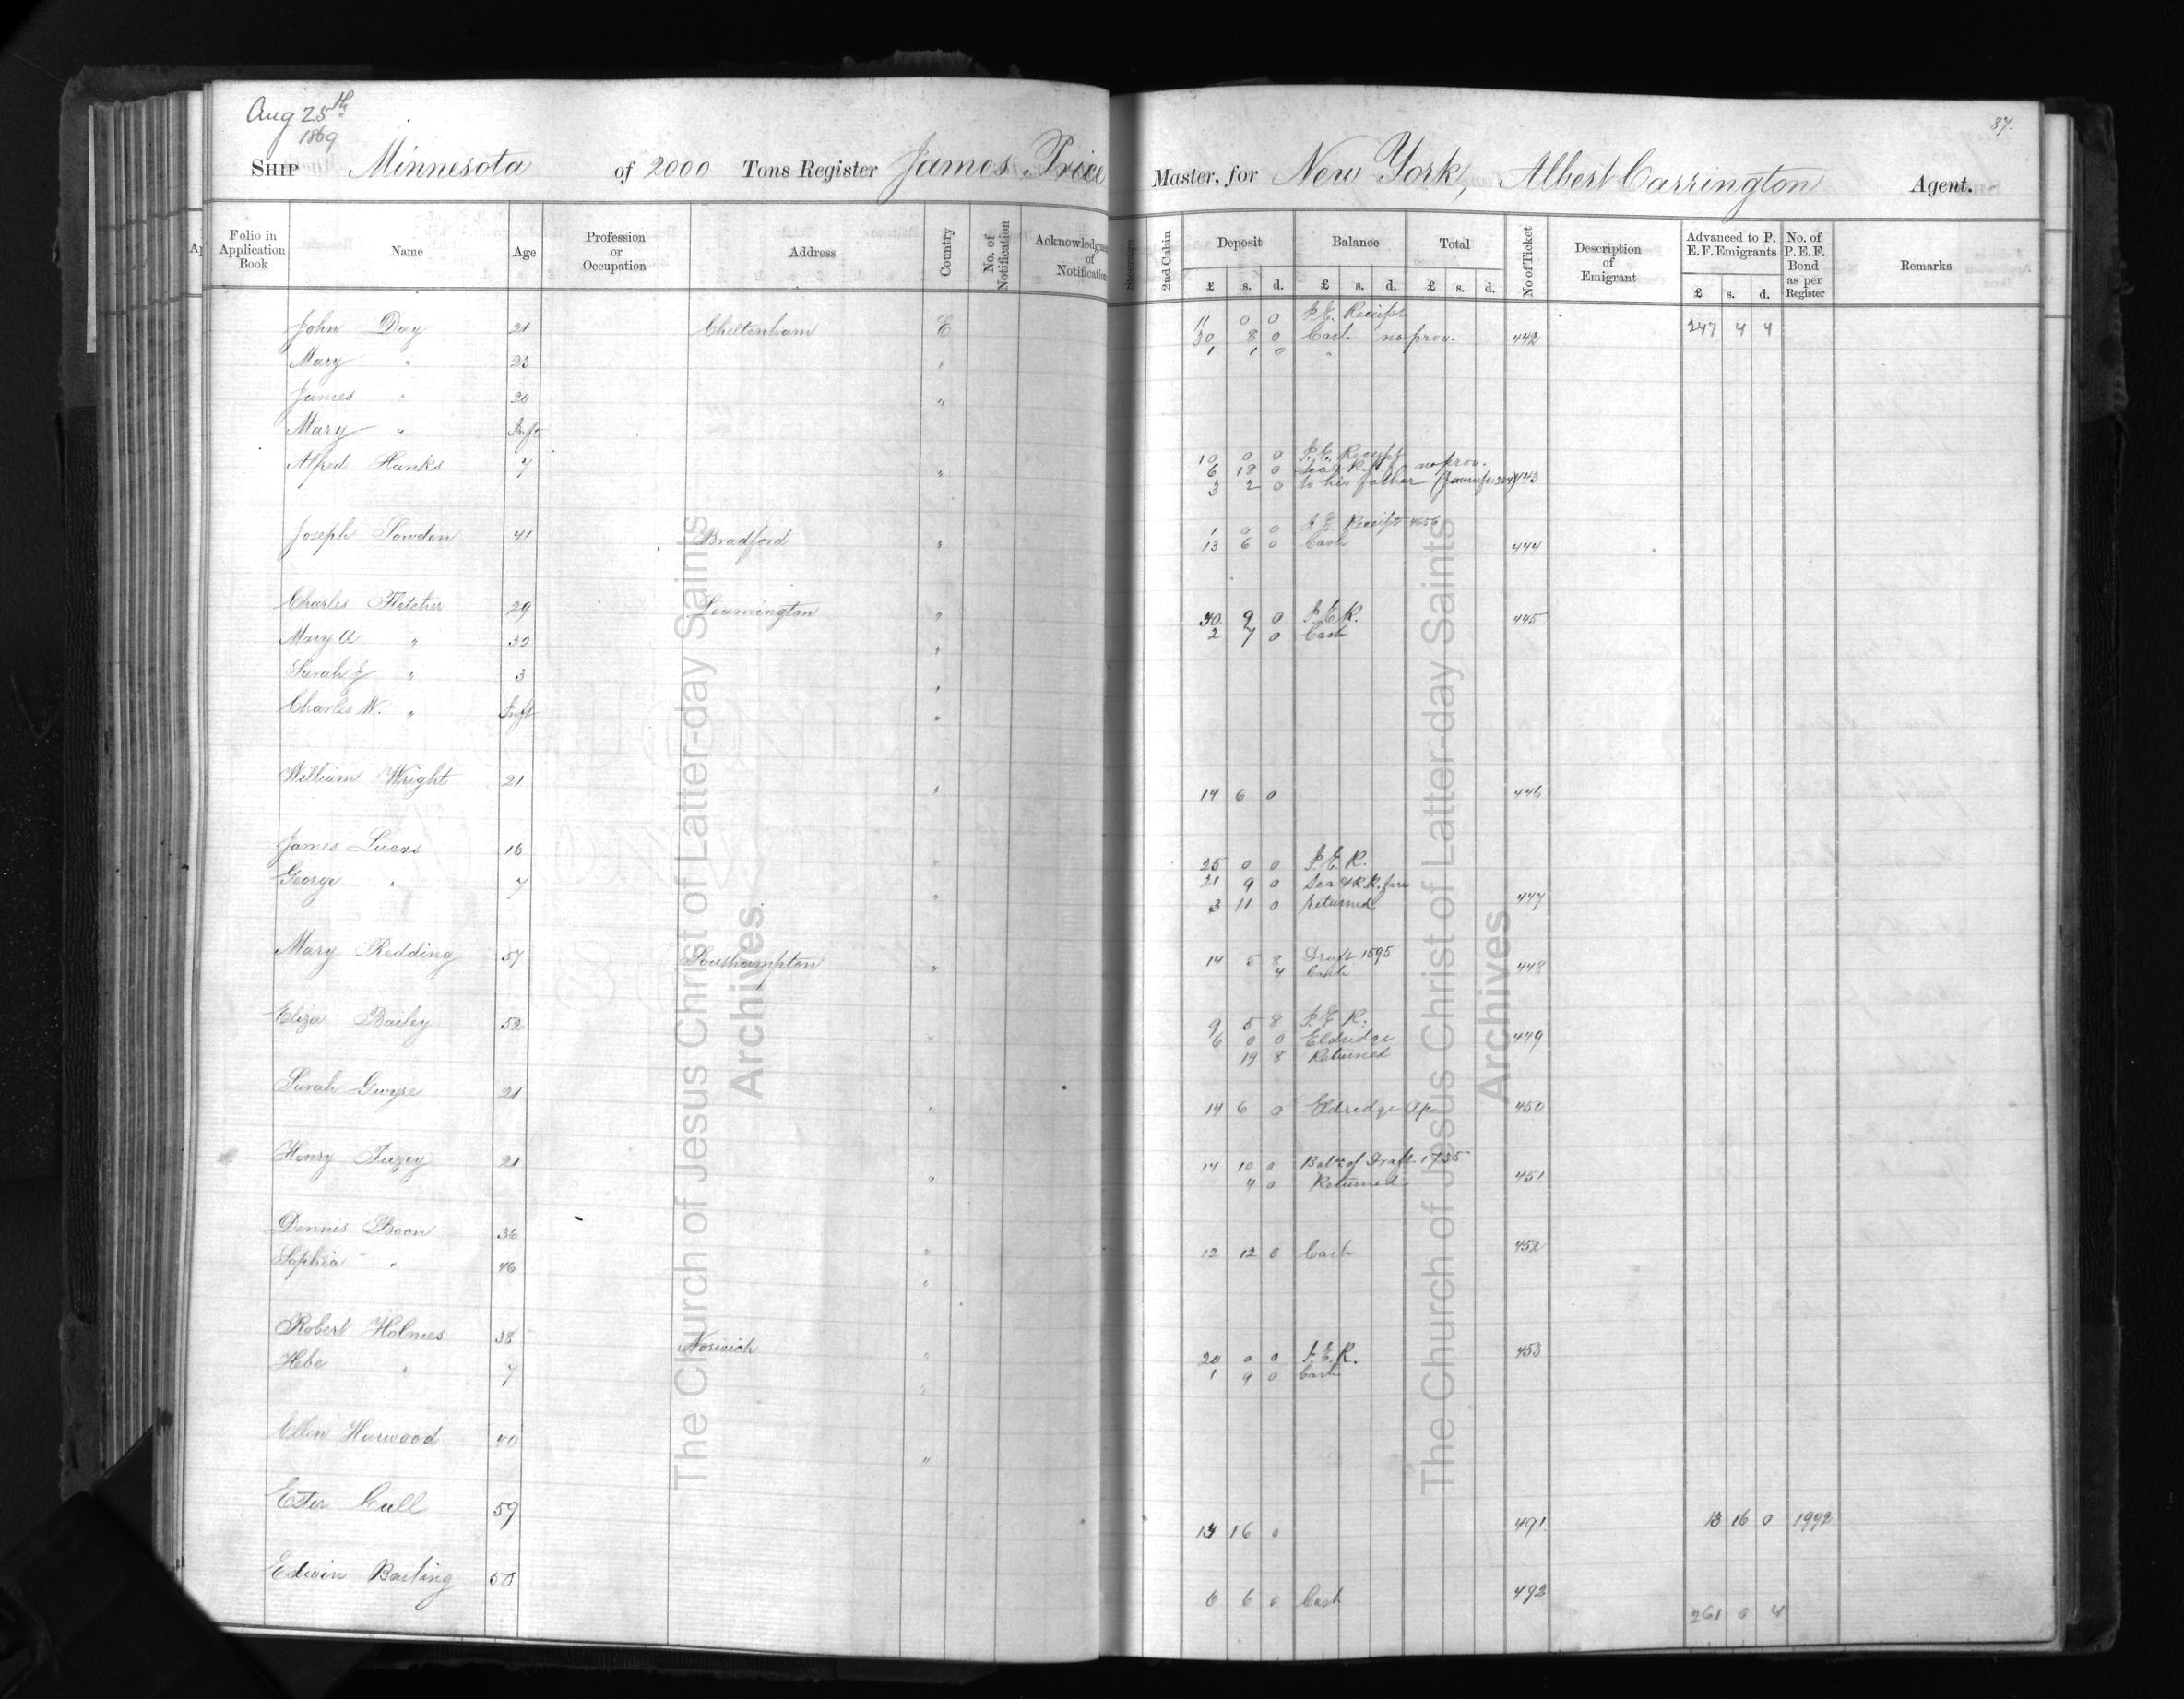 Aug 25th
1869
87.
SHIP Minnesota of 2000 Tons Register James Price Master, for New York, Albert Carrington Agent.
Folio in Application Book Name Age Profession or Occupation Address Country No. of Notification Acknowledgm of Notification Steerage 2nd Cabin Deposit £ s. d. Balance £ s. d. Total £ s. d. No of Ticket Description of Emigrant Advanced to P. E. F. Emigrants £ s. d. No. of P. E. F. Bond as per Register Remarks
John Day 21 Cheltenham E 11 0 0 P.E. Receipt 247 4 4
30 8 0 Cash no prov. 442
Mary " 23 " 1 1 0 "
James " 20 "
Mary " Inft
Alfred Hanks 7 " 10 0 0 P.E. Receipt
6 18 0 Sea & R. no prov.
3 2 0 to his father 443
Joseph Sowden 41 Bradford " 1 0 0 P.E. Receipt 4656
13 6 0 Cash 444
Charles Fletcher 29 Leamington " 30 9 0 P.E.R. 445
Mary A " 30 " 2 7 0 Cash
Sarah J " 3 "
Charles W. " Inft "
William Wright 21 " 14 6 0 446
James Lucas 16 " 25 0 0 P.E.R.
George " 7 " 21 9 0 Sea & R.R. fare
3 11 0 returned 447
Mary Redding 57 Southampton " 14 5 8 Draft 1595
4 Cash 448
Eliza Bailey 52 " 9 5 8 P.E.R.
6 0 0 Eldridge 449
19 8 Returned
Sarah Gwyre 21 " 14 6 0 Eldredge 450
Henry Tuzey 21 " 14 10 0 Balce of Draft 1735
4 0 Returned 451
Dennis Boon 36 " 12 12 0 Cash 452
Sophia " 46 "
Robert Holmes 38 Norwich " 20 0 0 P.E.R. 453
Hebe " 7 " 1 9 0 Cash
Ellen Harwood 40 "
Ester Cull 59 16 0 491 13 16 0 1992
Edwin Barling 50 6 6 0 Cash 492
261 0 4
The Church of Jesus Christ of Latter-day Saints
Archives
The Church of Jesus Christ of Latter-day Saints
Archives